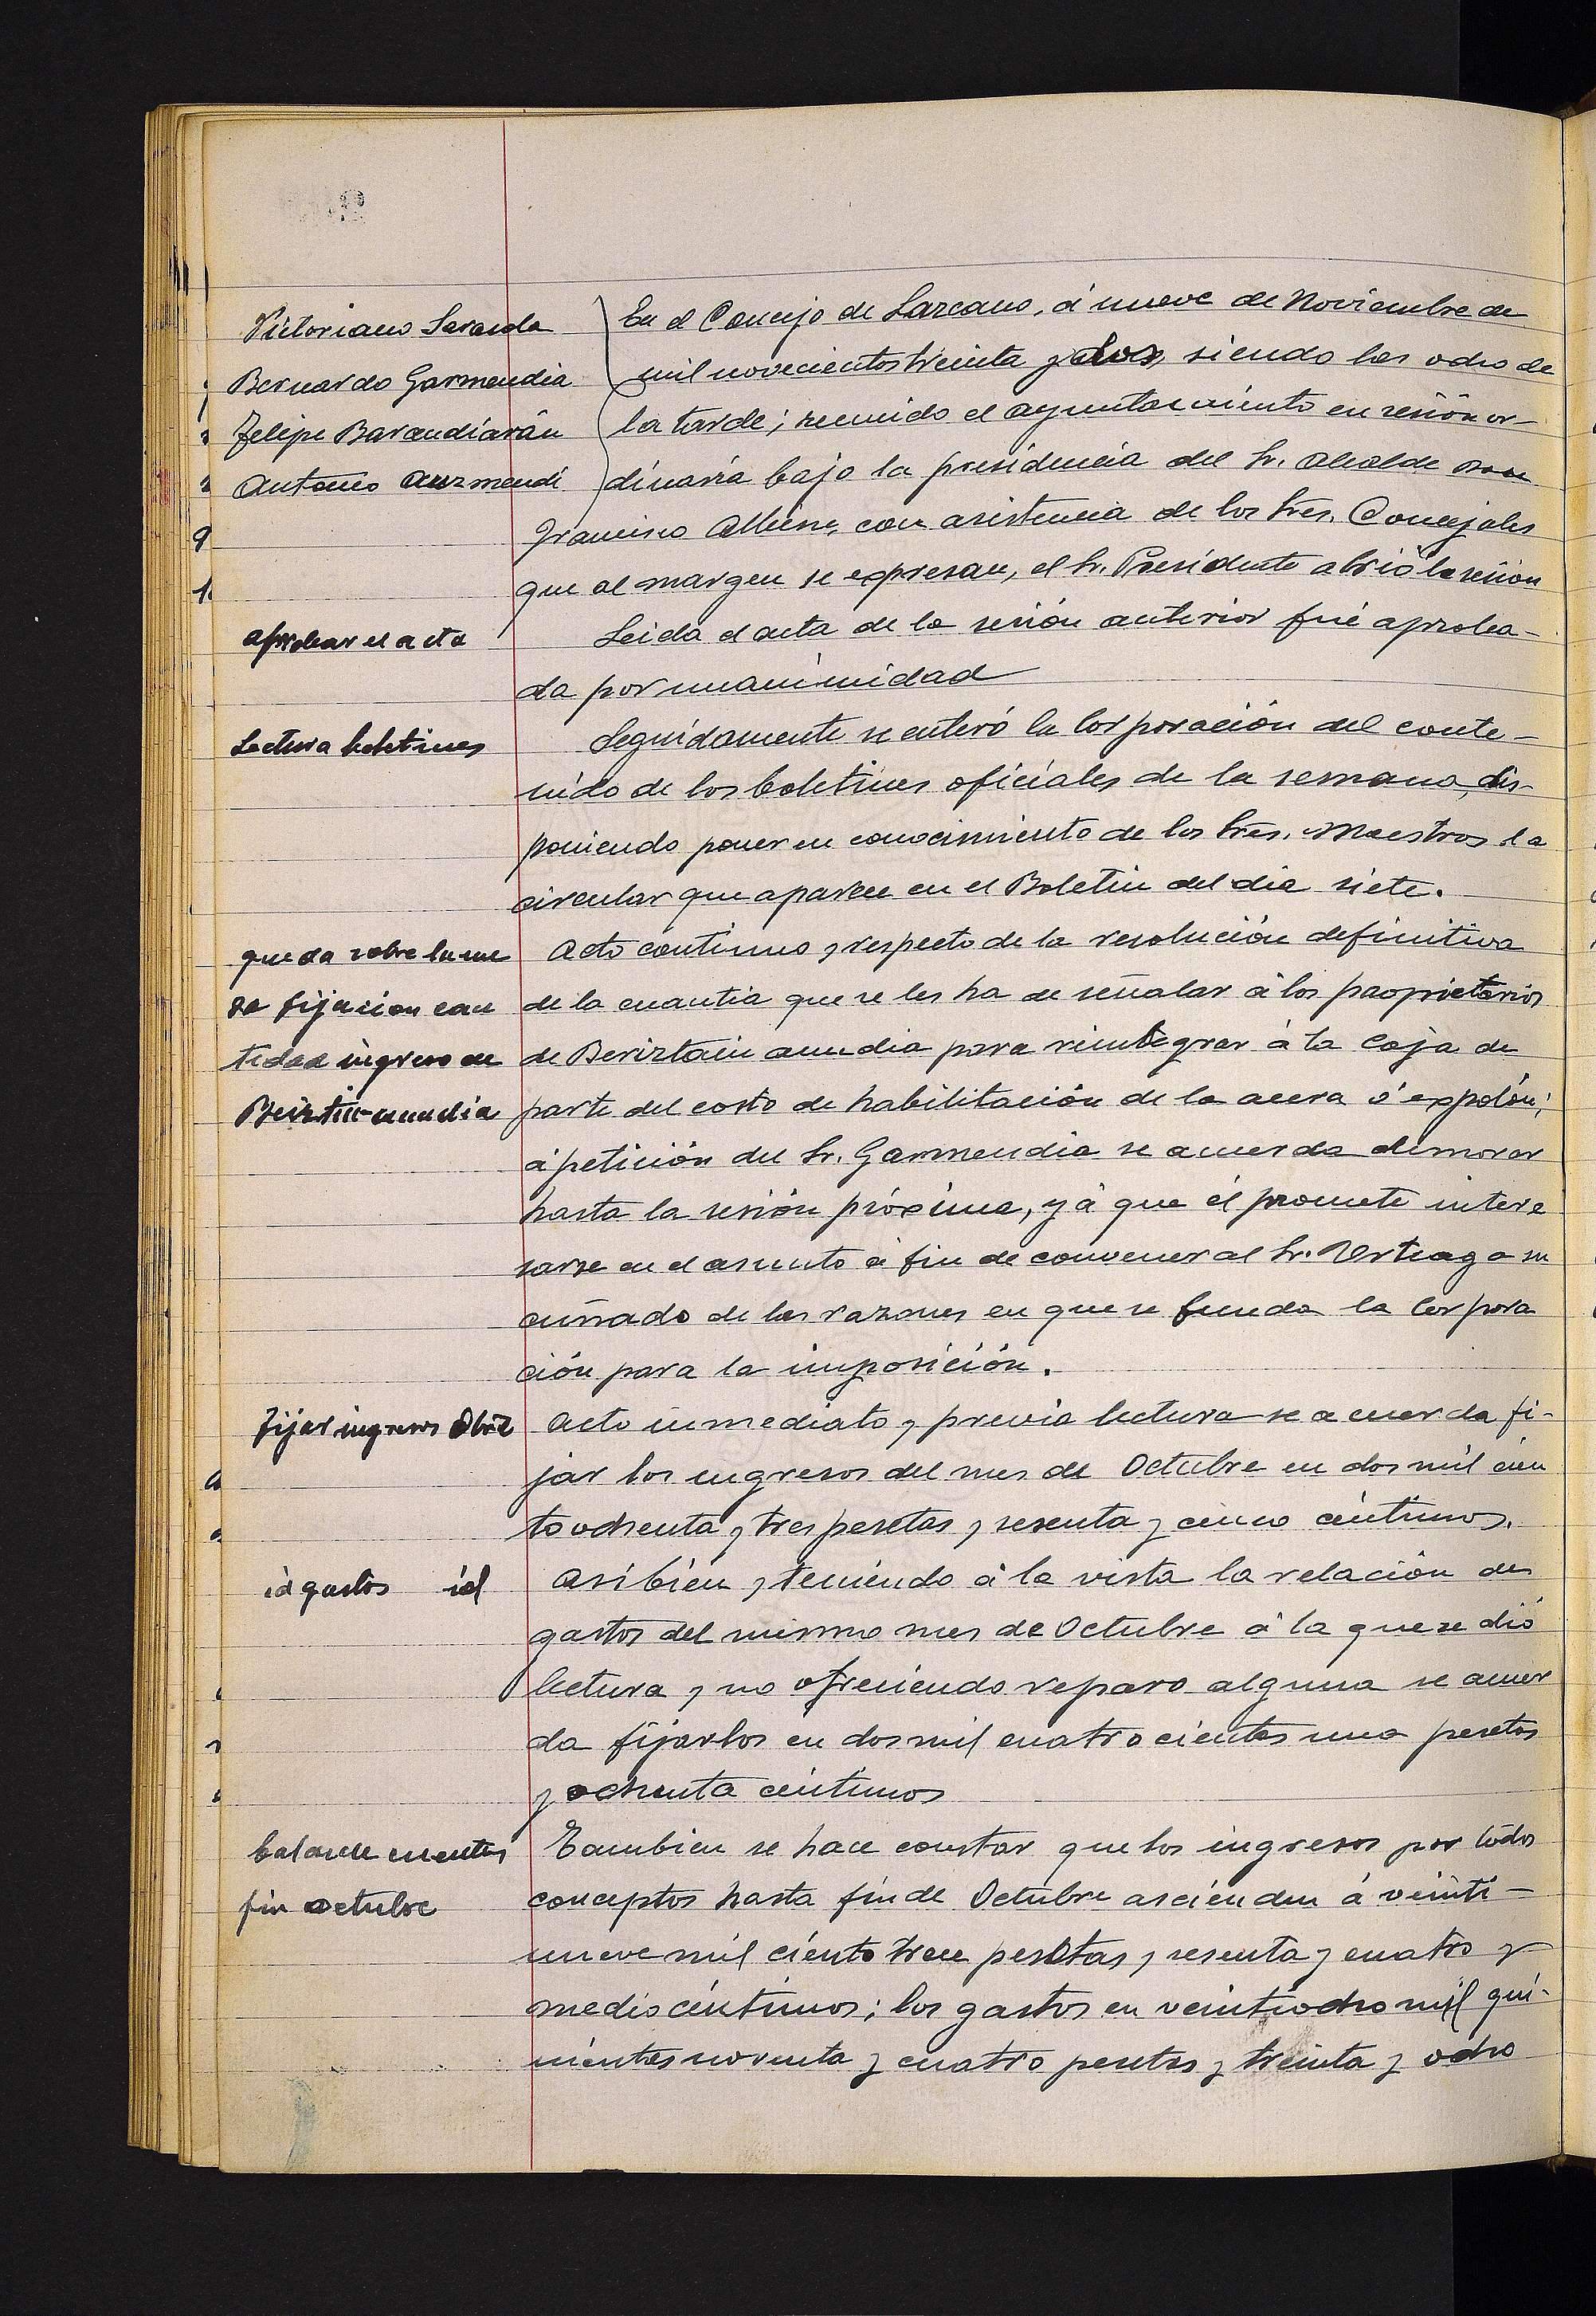 Victoriano Saranda
Bernardo Garmendia
Felipe Barandiarán
Antonio Auzmendi
En el Concejo de Lazcano, á nueve de Noviembre de
mil novecientos treinta y dos, siendo las ocho de
la tarde; reunido el ayuntamiento en sesión or-
dinaria bajo la presidencia del Sr. Alcalde Don
Francisco Albisu, con asistencia de los Sres. Concejales
que al margen se expresan, el Sr. Presidente abrió la sesion
aprobar el acta
Leida el acta de la sesión anterior fué aproba-
da por unanimidad
Lectura boletines
Seguidamente se enteró la Corporación del conte-
nido de los boletines oficiales de la semana, dis-
poniendo poner en conocimiento de los Sres. Maestros la
circular que aparece en el Boletin del dia siete.
queda sobre la me
sa fijacion can
tidad ingreso de
Beiztin-aundia
Acto continuo y respecto de la resolución definitiva
de la cuantia que se les ha de señalar á los propietarios
de Beriztain aundia para reintegrar á la Caja de
parte del costo de habilitación de la acera ó expolón;
á petición del Sr. Garmendia se acuerda demorar
hasta la sesión próxima, y á que él promete intere
sarse en el asunto á fin de convencer al Sr. Urteaga su
cuñado de las razones en que se funda la Corpora
ción para la imposición.
Fijar ingresos Obre
Acto inmediato y previa lectura se acuerda fi-
jar los ingresos del mes de Octubre en dos mil cien
to ochenta y tres pesetas y sesenta y cinco céntimos.
id gastos id
Asi bien y teniendo á la vista la relación de
gastos del mismo mes de Octubre á la que se dió
lectura y no ofreciendo reparo alguna se acuer
da fijarlos en dos mil cuatrocientas una pesetas
y ochenta céntimos
balance cuentas
fin Octubre
Tambien se hace constar que los ingresos por todos
conceptos hasta fin de Octubre ascienden á veinti-
nueve mil ciento trece pesetas y sesenta y cuatro y
medio céntimos; los gastos en veintiocho mil qui-
nientas noventa y cuatro pesetas y treinta y ocho